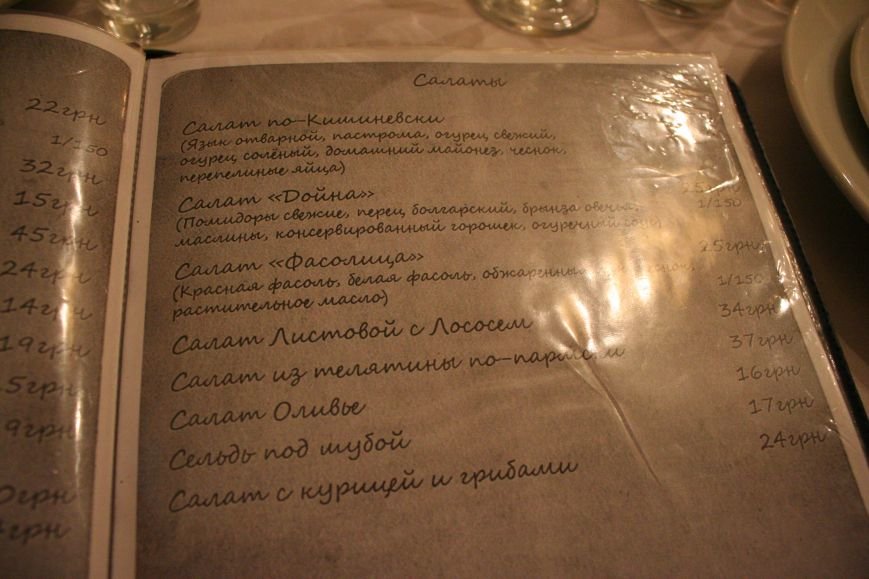 22грн
1/150
32грн
15грн
45грн
24грн
14грн
19грн
5грн
9грн
0грн
грн
Салаты
Салат по-Кишиневски
(Язык отварной, пастрома, огурец свежий,
огурец солёный, домашний майонез, чеснок,
перепелиные яйца)
Салат «Дойна»
(Помидоры свежие, перец болгарский, брынза овечья, 1/150
маслины, консервированный горошек, огуречный соус)
Салат «Фасолица» 25грн
(Красная фасоль, белая фасоль, 1/150
растительное масло)
Салат Листовой с Лососем 34грн
Салат из телятины 37грн
Салат Оливье 16грн
Сельдь под шубой 17грн
Салат с курицей и грибами 24грн